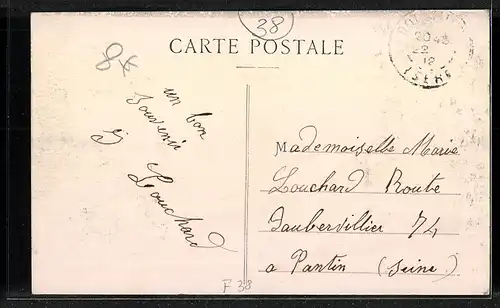 38
CARTE POSTALE
20 45
22
12
ISERE
8f
un bon
souvenir
Louchard
Mademoiselle Marie
Louchard Route
Daubervillier 74
a Pantin (Seine)
F 38